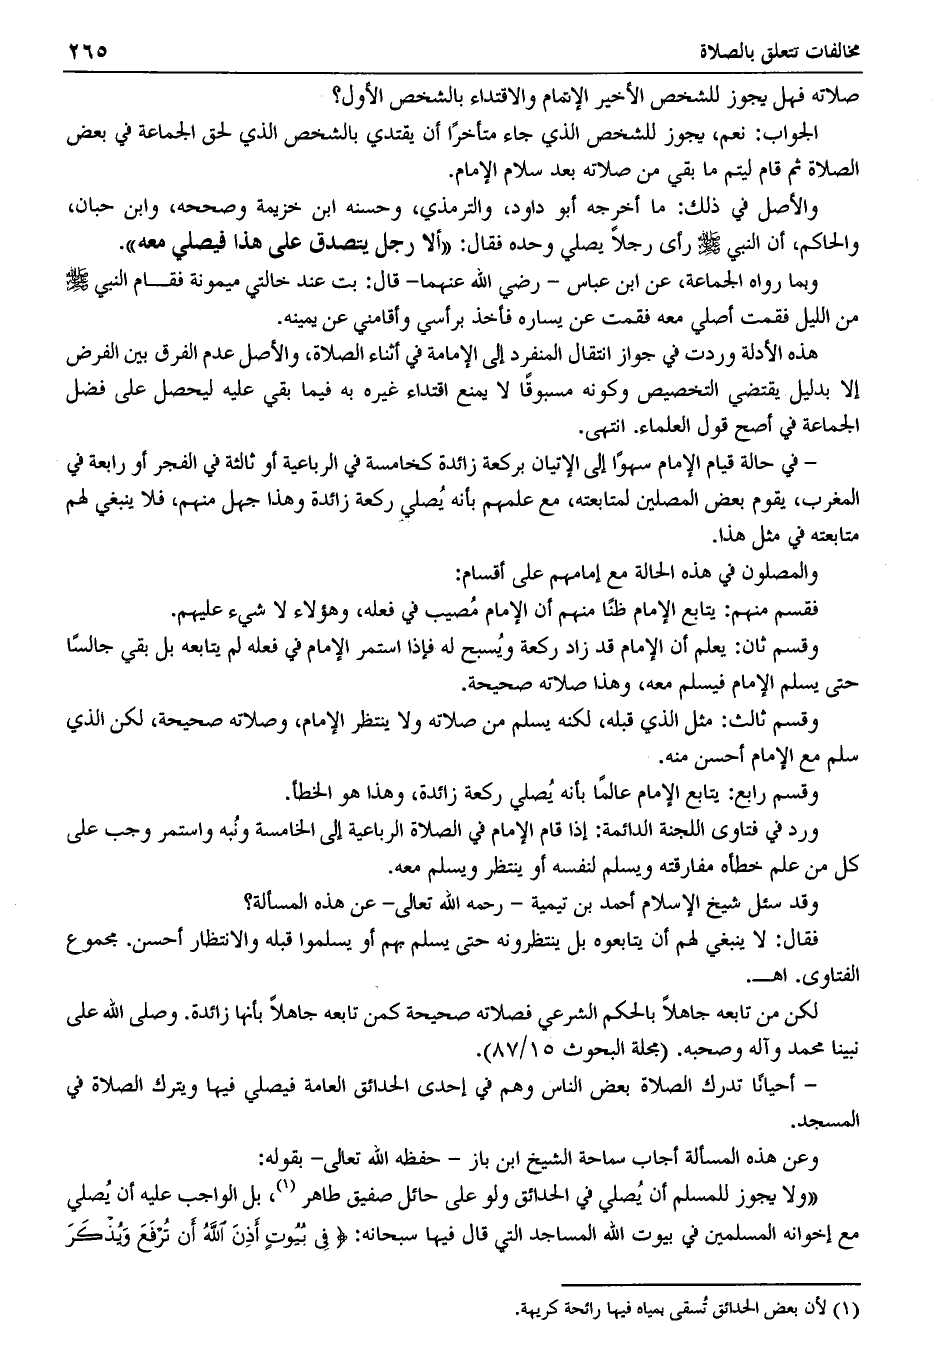 مخالفات تتعلق بالصلاة ٢٦٥
صلاته فهل يجوز للشخص الأخير الإتمام والاقتداء بالشخص الأول؟
الجواب: نعم، يجوز للشخص الذي جاء متأخرًا أن يقتدي بالشخص الذي لحق الجماعة في بعض
الصلاة ثم قام ليتم ما بقي من صلاته بعد سلام الإمام.
والأصل في ذلك: ما أخرجه أبو داود، والترمذي، وحسنه ابن خزيمة وصححه، وابن حبان،
والحاكم، أن النبي ﷺ رأى رجلاً يصلي وحده فقال: «ألا رجل يتصدق على هذا فيصلي معه».
وبما رواه الجماعة، عن ابن عباس - رضي الله عنهما- قال: بت عند خالتي ميمونة فقــام النبي ﷺ
من الليل فقمت أصلي معه فقمت عن يساره فأخذ برأسي وأقامني عن يمينه.
هذه الأدلة وردت في جواز انتقال المنفرد إلى الإمامة في أثناء الصلاة، والأصل عدم الفرق بين الفرض
إلا بدليل يقتضي التخصيص وكونه مسبوقًا لا يمنع اقتداء غيره به فيما بقي عليه ليحصل على فضل
الجماعة في أصح قول العلماء. انتهى.
- في حالة قيام الإمام سهوًا إلى الإتيان بركعة زائدة كخامسة في الرباعية أو ثالثة في الفجر أو رابعة في
المغرب، يقوم بعض المصلين لمتابعته، مع علمهم بأنه يُصلي ركعة زائدة وهذا جهل منهم، فلا ينبغي لهم
متابعته في مثل هذا.
والمصلون في هذه الحالة مع إمامهم على أقسام:
فقسم منهم: يتابع الإمام ظنًا منهم أن الإمام مُصيب في فعله، وهؤلاء لا شيء عليهم.
وقسم ثان: يعلم أن الإمام قد زاد ركعة ويُسبح له فإذا استمر الإمام في فعله لم يتابعه بل بقي جالسًا
حتى يسلم الإمام فيسلم معه، وهذا صلاته صحيحة.
وقسم ثالث: مثل الذي قبله، لكنه يسلم من صلاته ولا ينتظر الإمام، وصلاته صحيحة، لكن الذي
سلم مع الإمام أحسن منه.
وقسم رابع: يتابع الإمام عالمًا بأنه يُصلي ركعة زائدة، وهذا هو الخطأ.
ورد في فتاوى اللجنة الدائمة: إذا قام الإمام في الصلاة الرباعية إلى الخامسة ونُبه واستمر وجب على
كل من علم خطأه مفارقته ويسلم لنفسه أو ينتظر ويسلم معه.
وقد سئل شيخ الإسلام أحمد بن تيمية - رحمه الله تعالى- عن هذه المسألة؟
فقال: لا ينبغي لهم أن يتابعوه بل ينتظرونه حتى يسلم بهم أو يسلموا قبله والانتظار أحسن. مجموع
الفتاوى. اهــ.
لكن من تابعه جاهلاً بالحكم الشرعي فصلاته صحيحة كمن تابعه جاهلاً بأنها زائدة. وصلى الله على
نبينا محمد وآله وصحبه. (مجلة البحوث ٨٧/١٥).
- أحيانًا تدرك الصلاة بعض الناس وهم في إحدى الحدائق العامة فيصلي فيها ويترك الصلاة في
المسجد.
وعن هذه المسألة أجاب سماحة الشيخ ابن باز - حفظه الله تعالى- بقوله:
«ولا يجوز للمسلم أن يُصلي في الحدائق ولو على حائل صفيق طاهر (١)، بل الواجب عليه أن يُصلي
مع إخوانه المسلمين في بيوت الله المساجد التي قال فيها سبحانه: ﴿ فِى بُيُوتٍ أَذِنَ ٱللَّهُ أَن تُرْفَعَ وَيُذْكَرَ
(١) لأن بعض الحدائق تُسقى بمياه فيها رائحة كريهة.